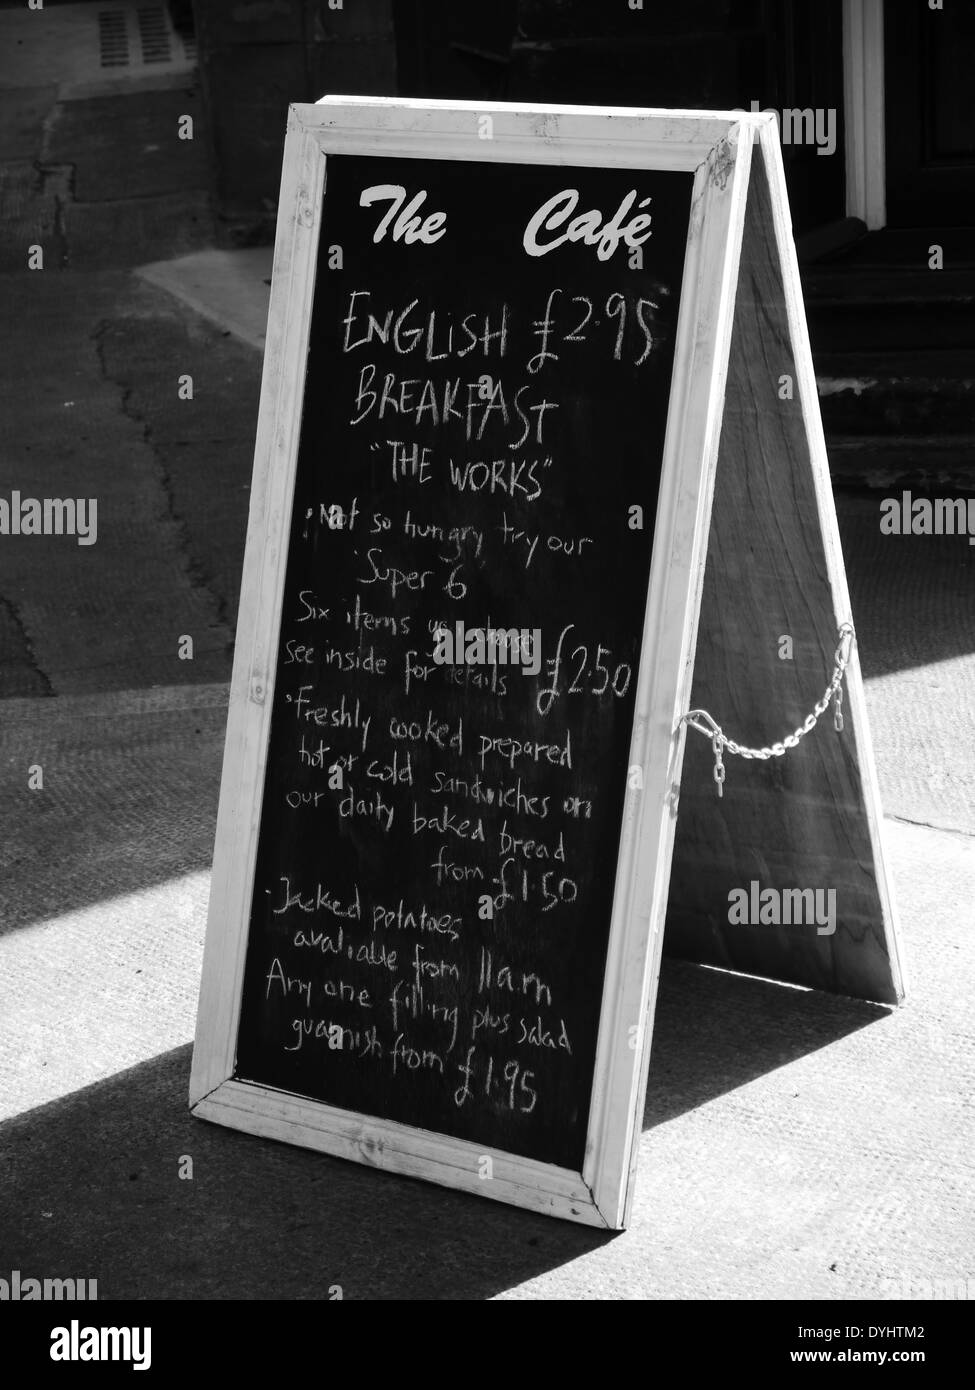 The Café
ENGLISH £2.95
BREAKFAST
"THE WORKS"
Not so hungry try our
Super 6
Six items you choose
see inside for details £2.50
Freshly cooked prepared
hot or cold sandwiches on
our daily baked bread
from £1.50
Jacked potatoes
avaliable from 11a.m
Any one filling plus salad
guarnish from £1.95
alamy stock photo
DYHTM2
www.alamy.com